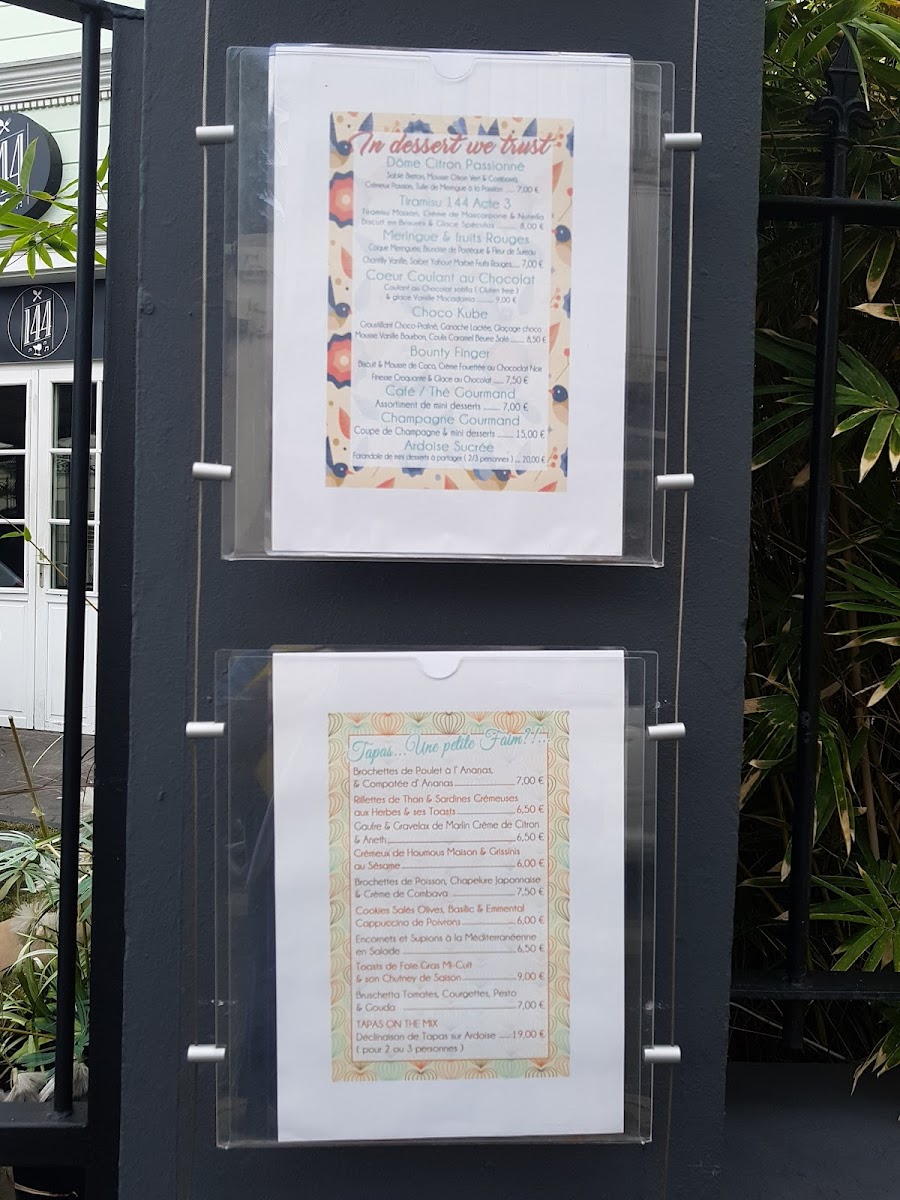 144
144
In dessert we trust
Dôme Citron Passionné
Sablé Breton, Mousse Citron Vert & Combawa,
Crémeux Passion, Tuile de Meringue à la Passion ..... 7,00 €
Tiramisu 144 Acte 3
Tiramisu Maison, Crème de Mascarpone & Nutella
Biscuit en Brisures & Glace Spéculos .......... 8,00 €
Meringue & fruits Rouges
Coque Meringuées, Brunoise de Pastèque & Fleur de Sureau
Chantilly Vanille, Sorbet Yahourt Marbré Fruits Rouges..... 7,00 €
Coeur Coulant au Chocolat
Coulant au Chocolat ( Gluten free )
& glace Vanille Macadamia .......... 9,00 €
Choco Kube
Croustillant Choco-Praliné, Ganache Lactée, Glaçage choco
Mousse Vanille Bourbon, Coulis Caramel Beurre Salé ........ 8,50 €
Bounty Finger
Biscuit & Mousse de Coco, Crème Fouettée au Chocolat Noir
Finesse Croquante & Glace au Chocolat ..... 7,50 €
Café / Thé Gourmand
Assortiment de mini desserts .......... 7,00 €
Champagne Gourmand
Coupe de Champagne & mini desserts .......... 15,00 €
Ardoise Sucrée
Farandole de mini desserts à partager ( 2/3 personnes ) ... 20,00 €
Tapas...Une petite Faim?!...
Brochettes de Poulet à l' Ananas,
& Compotée d' Ananas..........7,00 €
Rillettes de Thon & Sardines Crémeuses
aux Herbes & ses Toasts..........6,50 €
Gaufre & Gravelax de Marlin Crème de Citron
& Aneth..........6,50 €
Crémeux de Houmous Maison & Grissinis
au Sésame..........6,00 €
Brochettes de Poisson, Chapelure Japonnaise
& Crème de Combava ..........7,50 €
Cookies Salés Olives, Basilic & Emmental
Cappuccino de Poivrons..........6,00 €
Encornets et Supions à la Méditerranéenne
en Salade ..........6,50 €
Toasts de Foie Gras Mi-Cuit
& son Chutney de Saison..........9,00 €
Bruschetta Tomates, Courgettes, Pesto
& Gouda ..........7,00 €
TAPAS ON THE MIX
Déclinaison de Tapas sur Ardoise .....19,00 €
( pour 2 ou 3 personnes )